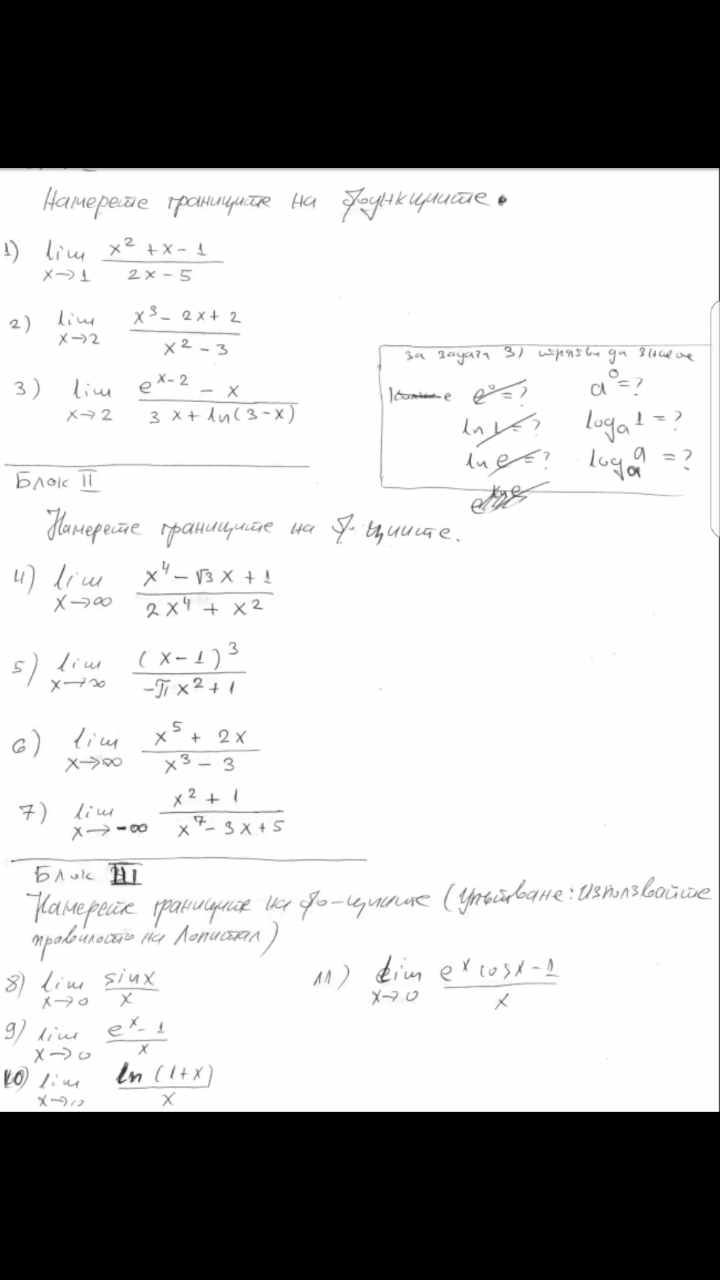 Намерете границите на функциите.
1) lim x→1 (x² + x - 1)/(2x - 5)
2) lim x→2 (x³ - 2x + 2)/(x² - 3)
3) lim x→2 (e^(x-2) - x)/(3x + ln(3-x))
за задача 3) трябва да знаете
e⁰ = ? a⁰ = ?
ln 1 = ? logₐ1 = ?
ln e = ? logₐa = ?
Блок II
Намерете границите на ф-циите.
4) lim x→∞ (x⁴ - √3x + 1)/(2x⁴ + x²)
5) lim x→∞ (x-1)³/(-πx² + 1)
6) lim x→∞ (x⁵ + 2x)/(x³ - 3)
7) lim x→-∞ (x² + 1)/(x⁷ - 3x + 5)
Блок III
Намерете границите на ф-циите (Упътване: Използвайте
правилото на Лопитал)
8) lim x→0 sinx/x
9) lim x→0 (eˣ - 1)/x
10) lim x→0 ln(1+x)/x
11) lim x→0 (eˣcosx - 1)/x